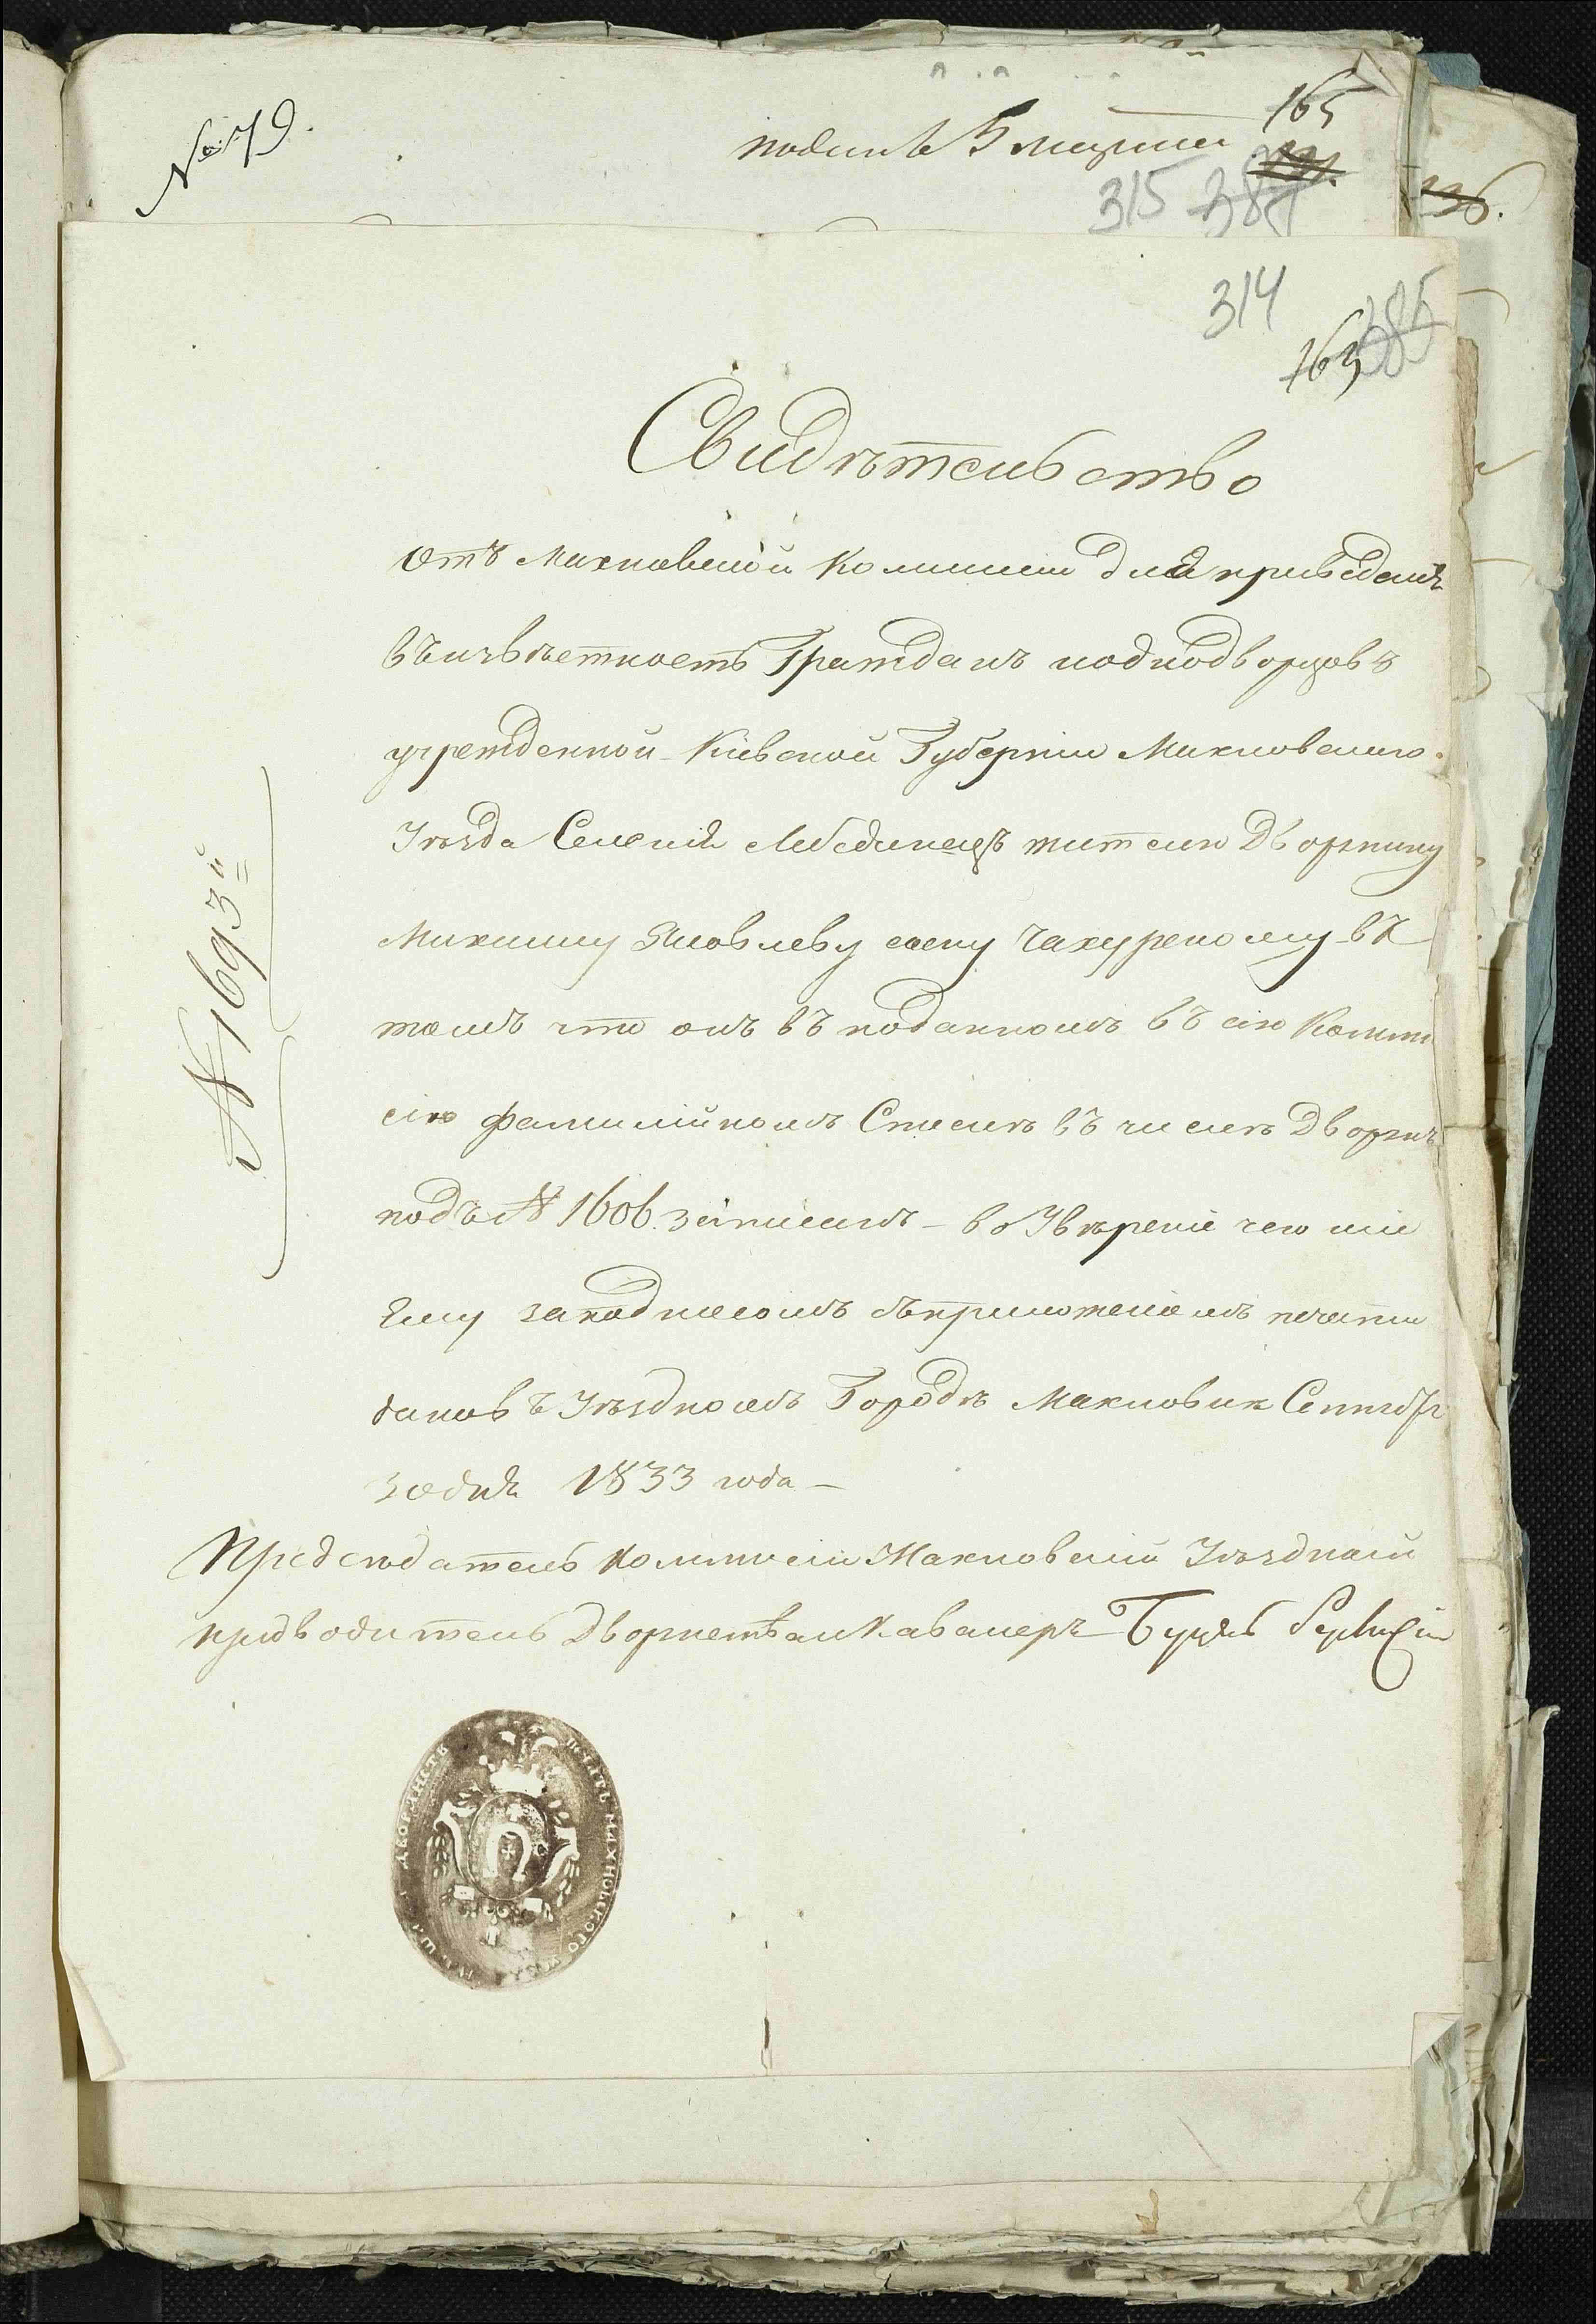 № 79.
165
315 387
136.
314
163 385
Свидѣтельство
Отъ Махновской Коммисіи для приведенія
въ извѣстность Гражданъ и однодворцовъ
учрежденной Кіевской Губерніи Махновского
Уѣзда Селенія Лебединецъ жителю Дворянину
Михаилу Яковлеву сыну Чахурскому въ
томъ что онъ въ поданномъ въ сію Комми
сію фамилійномъ Спискѣ въ числѣ Дворянъ
подъ № 1606 записанъ – во Увѣреніе чего сіе
Ему за подписомъ съ приложеніемъ печати
дано въ Уѣздномъ Городѣ Махновки Сентября
30 дня 1833 года –
Предсѣдатель Коммисіи Махновскій Уѣздный
предводитель Дворянства и Кавалеръ
№ 1693й
ПЕЧАТЬ МАХНОВСКОГО ДВОРЯНСТВ